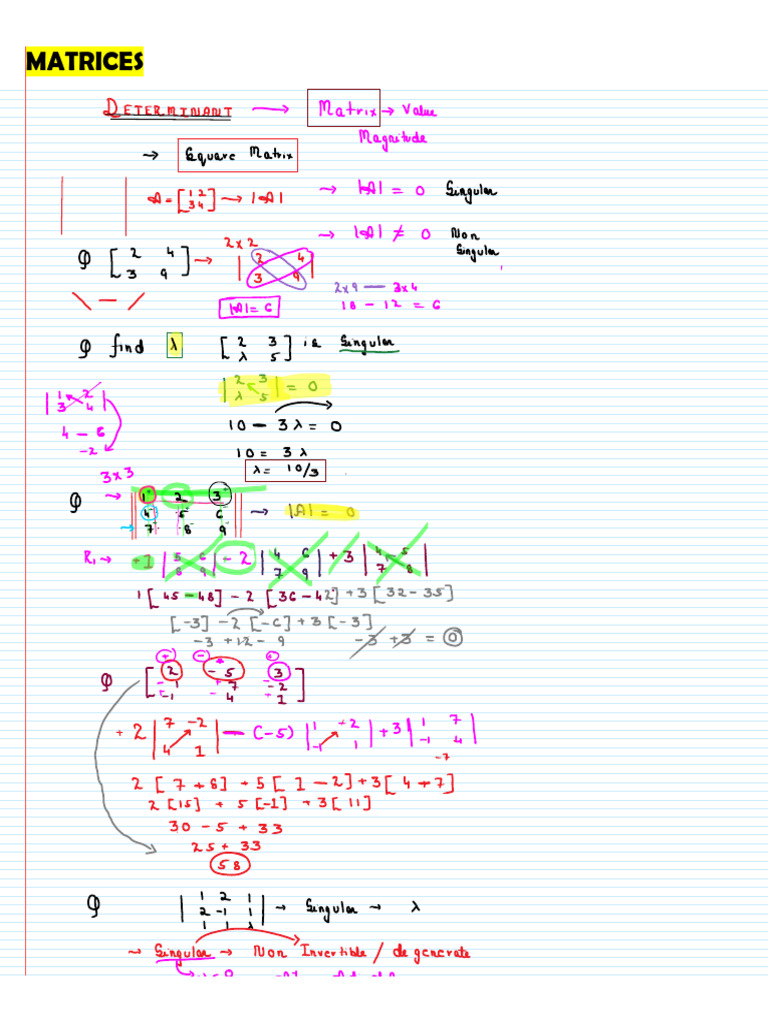 MATRICES
DETERMINANT → Matrix → Value
Magnitude
→ Square Matrix
A = [1 2 → |A| → |A| = 0 Singular
3 4]
→ |A| ≠ 0 Non Singular
Q [2 4 → 2×2 |2 4
3 9] 3 9|
2×9 — 3×4
|A| = 6 18 – 12 = 6
\ — /
Q find λ [2 3 is Singular
λ 5]
|2 3 = 0
λ 5|
|1 2
3 4|
10 – 3λ = 0
4 – 6
-2
10 = 3λ
λ = 10/3
3×3
Q → |1 2 3
4 5 6 → |A| = 0
→ 7 8 9|
R₁ → +1 |5 6 – 2 |4 6 + 3 |4 5
8 9| 7 9| 7 8|
1[45 – 48] – 2[36 – 42] + 3[32 – 35]
[-3] – 2[-6] + 3[-3]
-3 + 12 – 9 -3 + 3 = 0
+ – +
Q [2 -5 3
1 7 -2
-1 4 1]
+2 |7 -2 — (-5) |1 -2 + 3 |1 7
4 1| -1 1| -1 4|
-7
2[7+8] + 5[1–2] + 3[4+7]
2[15] + 5[-1] + 3[11]
30 – 5 + 33
25 + 33
58
Q |1 2 1
2 -1 1 → Singular → λ
1 1 λ|
→ Singular → Non Invertible / degenerate